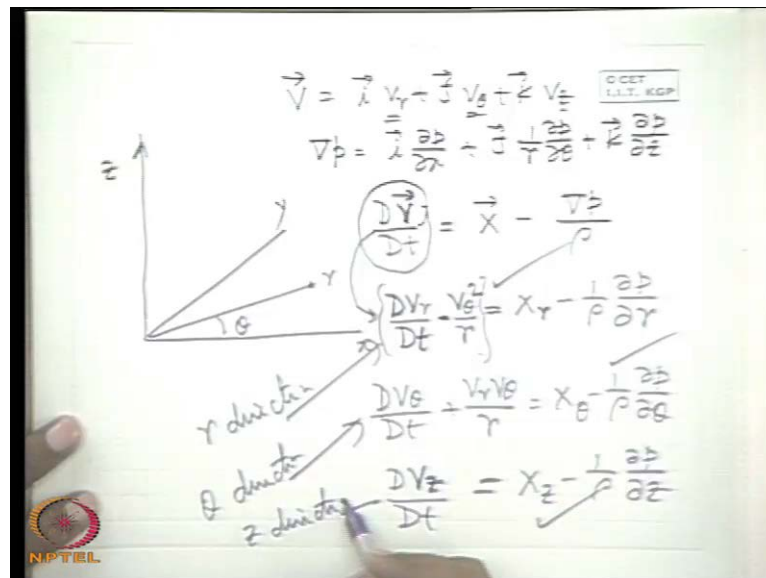 V⃗ = i⃗ Vr + j⃗ Vθ + k⃗ Vz
© CET
I.I.T. KGP
∇p = i⃗ ∂p/∂r + j⃗ 1/r ∂p/∂θ + k⃗ ∂p/∂z
z
y
r
θ
DV⃗/Dt = X⃗ - ∇p/ρ
r direction
DVr/Dt - Vθ²/r = Xr - 1/ρ ∂p/∂r
θ direction
DVθ/Dt + VrVθ/r = Xθ - 1/ρ ∂p/∂θ
z direction
DVz/Dt = Xz - 1/ρ ∂p/∂z
NPTEL